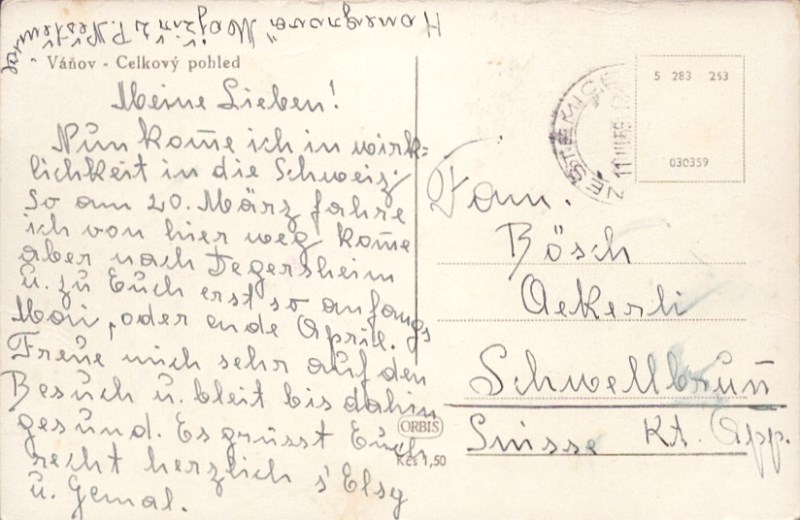 Váňov - Celkový pohled
Meine Lieben!
Nun kom̅e ich in wirk-
lichkeit in die Schweiz
So am 20. März fahre
ich von hier weg kom̅e
aber nach Degersheim
u. zu Euch erst so anfangs
Mai, oder ende April.
Freue mich sehr auf den
Besuch u. bleit bis dahin
gesund. Es grüsst Euch
recht herzlich s'Elsy
u. Gemal.
ORBIS
Kčs 1,50
5 283 253
030359
Fam.
Bösch
Aekerli
Schwellbrun̅
Suisse Kt. App.